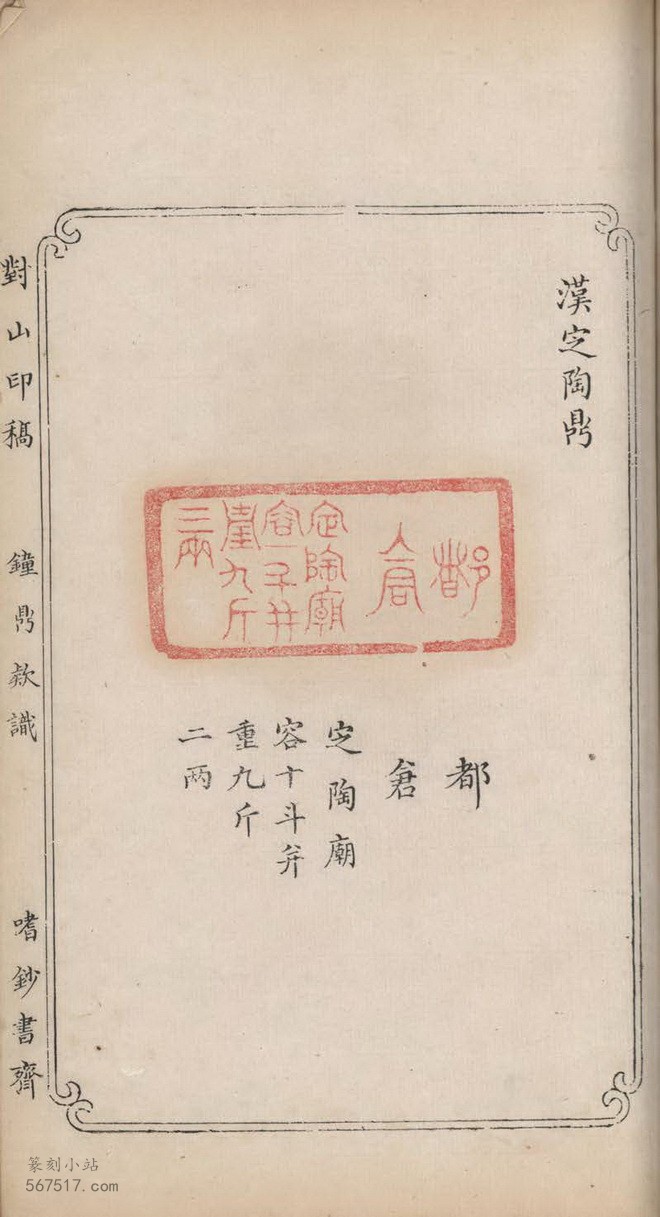 漢㝎陶鼎
都
倉
定陶廟
重九斤
都
倉
㝎陶廟
容十斗并
重九斤
二两
對山印稿
鐘鼎欵識
嗜鈔書齊
篆刻小站
567517.com